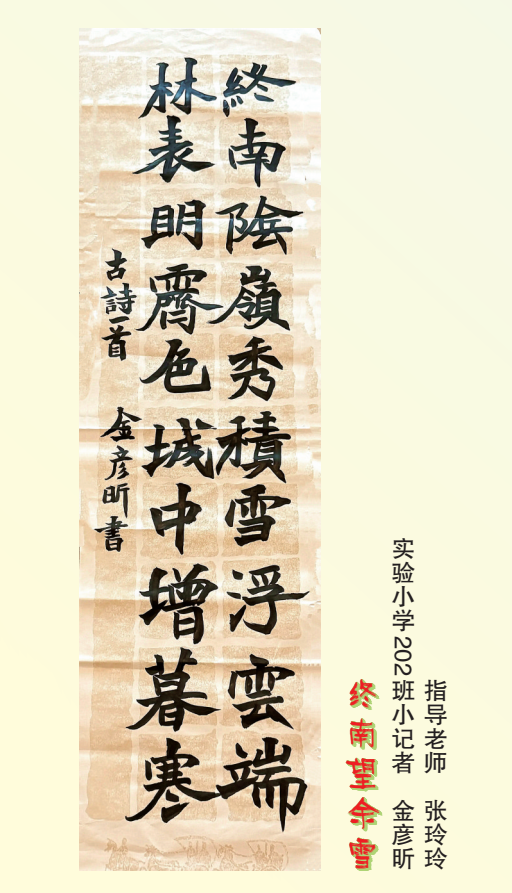 終南陰嶺秀積雪浮雲端
林表明霽色城中增暮寒
古詩一首 金彦昕書
终南望余雪
实验小学202班小记者 金彦昕
指导老师 张玲玲